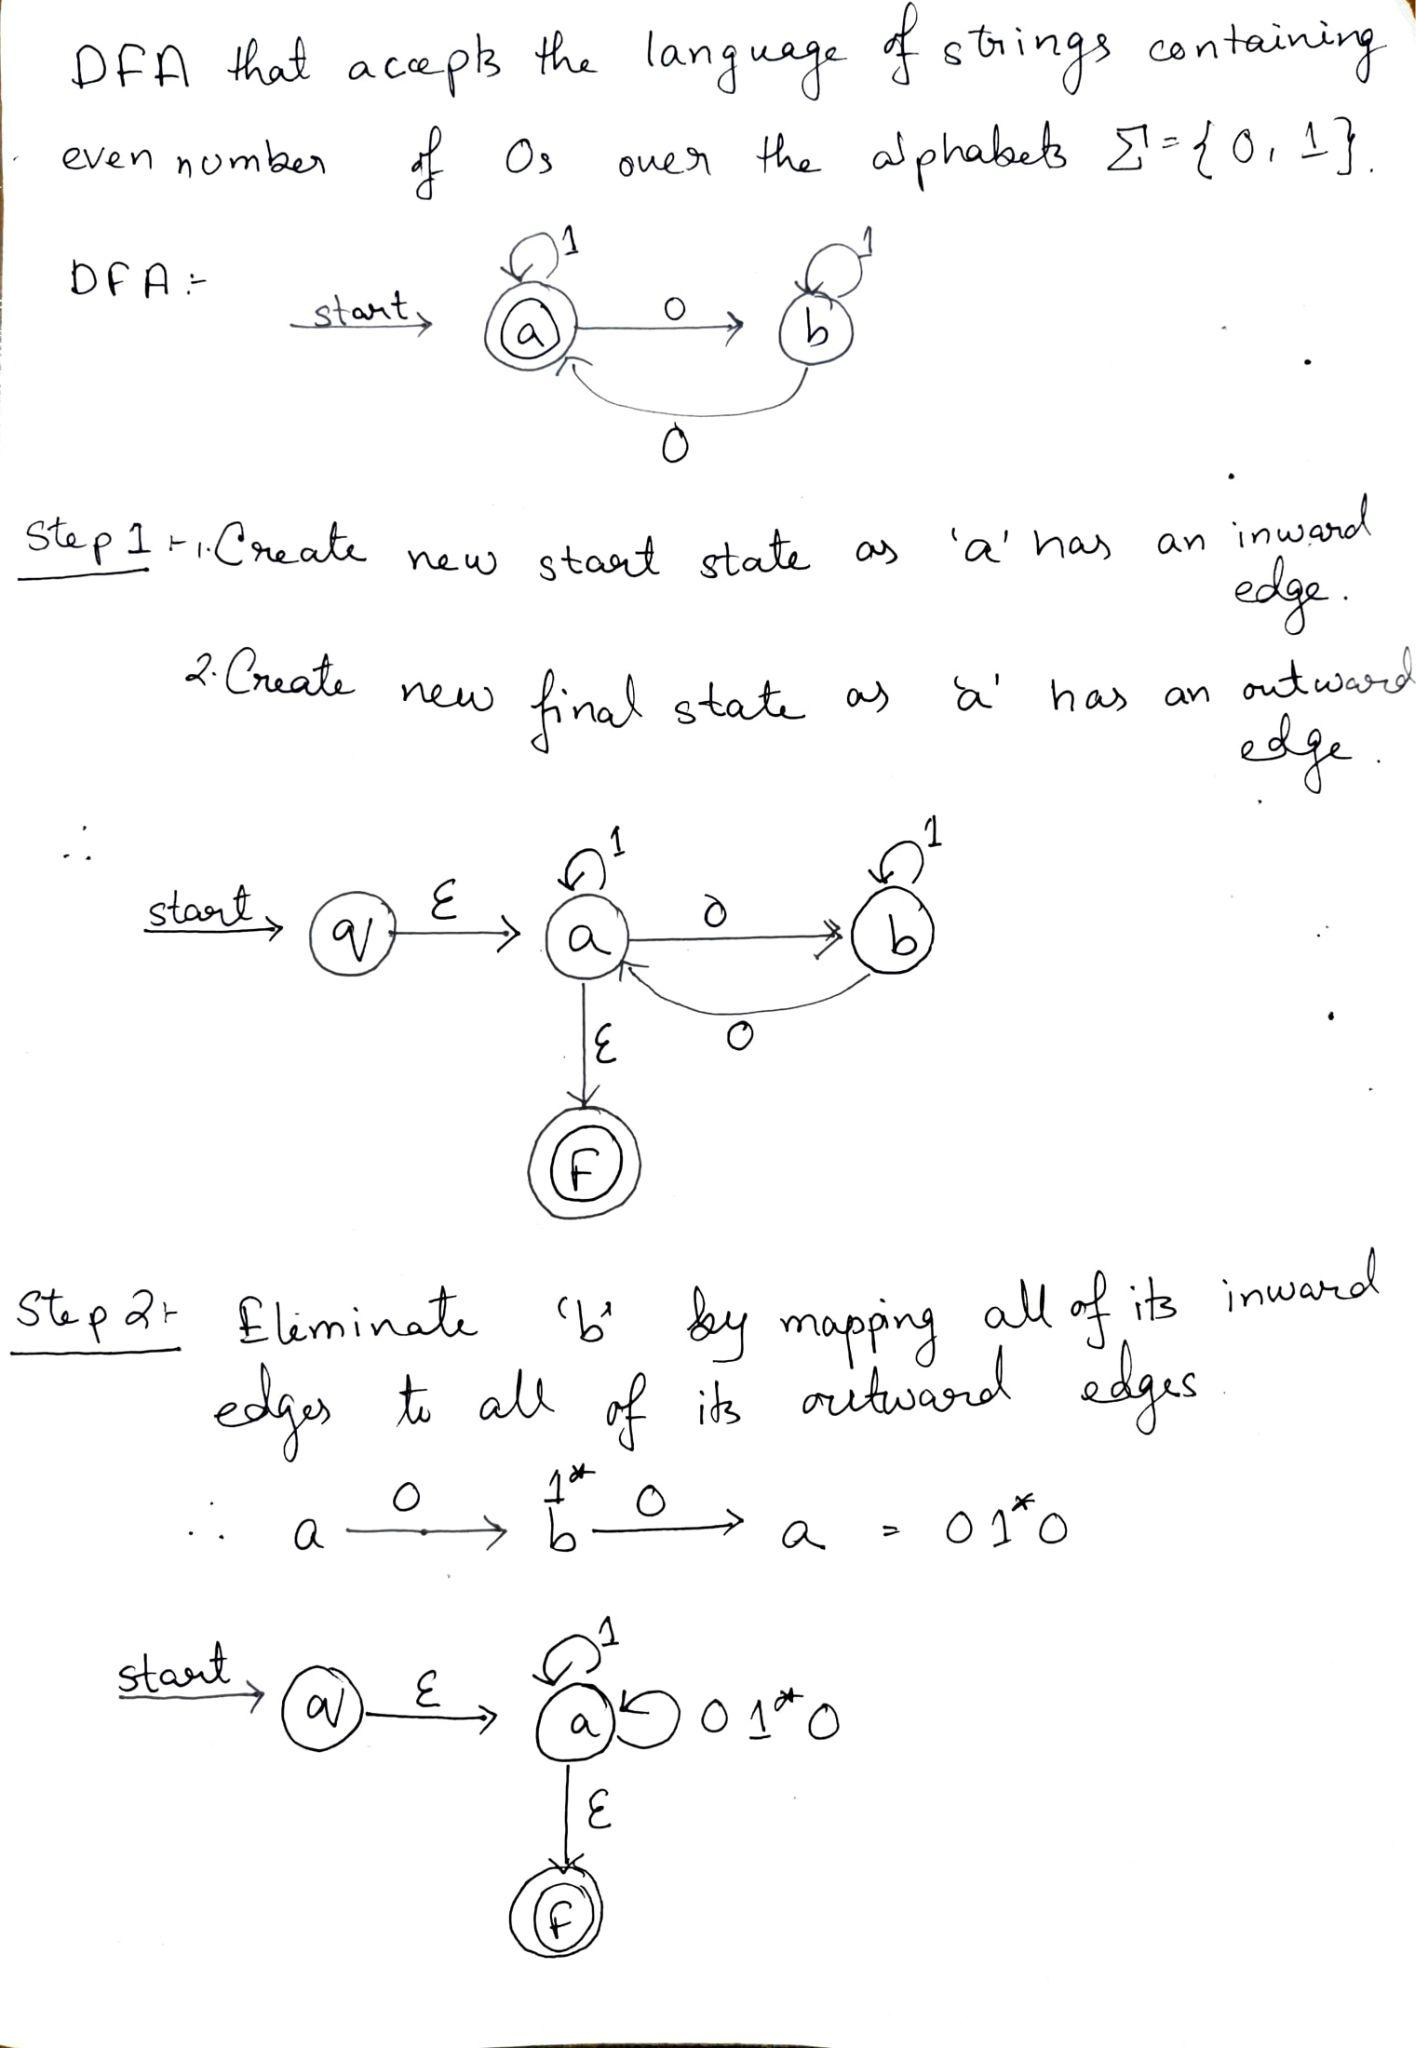 DFA that accepts the language of strings containing
even number of 0s over the alphabets Σ = {0, 1}.
DFA :-
1
1
start
a
0
b
0
Step 1 :- 1. Create new start state as 'a' has an inward
edge.
2. Create new final state as 'a' has an outward
edge.
∴
1
1
start
q
ε
a
0
b
ε
0
F
Step 2 :- Eliminate 'b' by mapping all of its inward
edges to all of its outward edges
∴ a 0 → b 1* 0 → a = 01*0
1
start
q
ε
a
01*0
ε
F